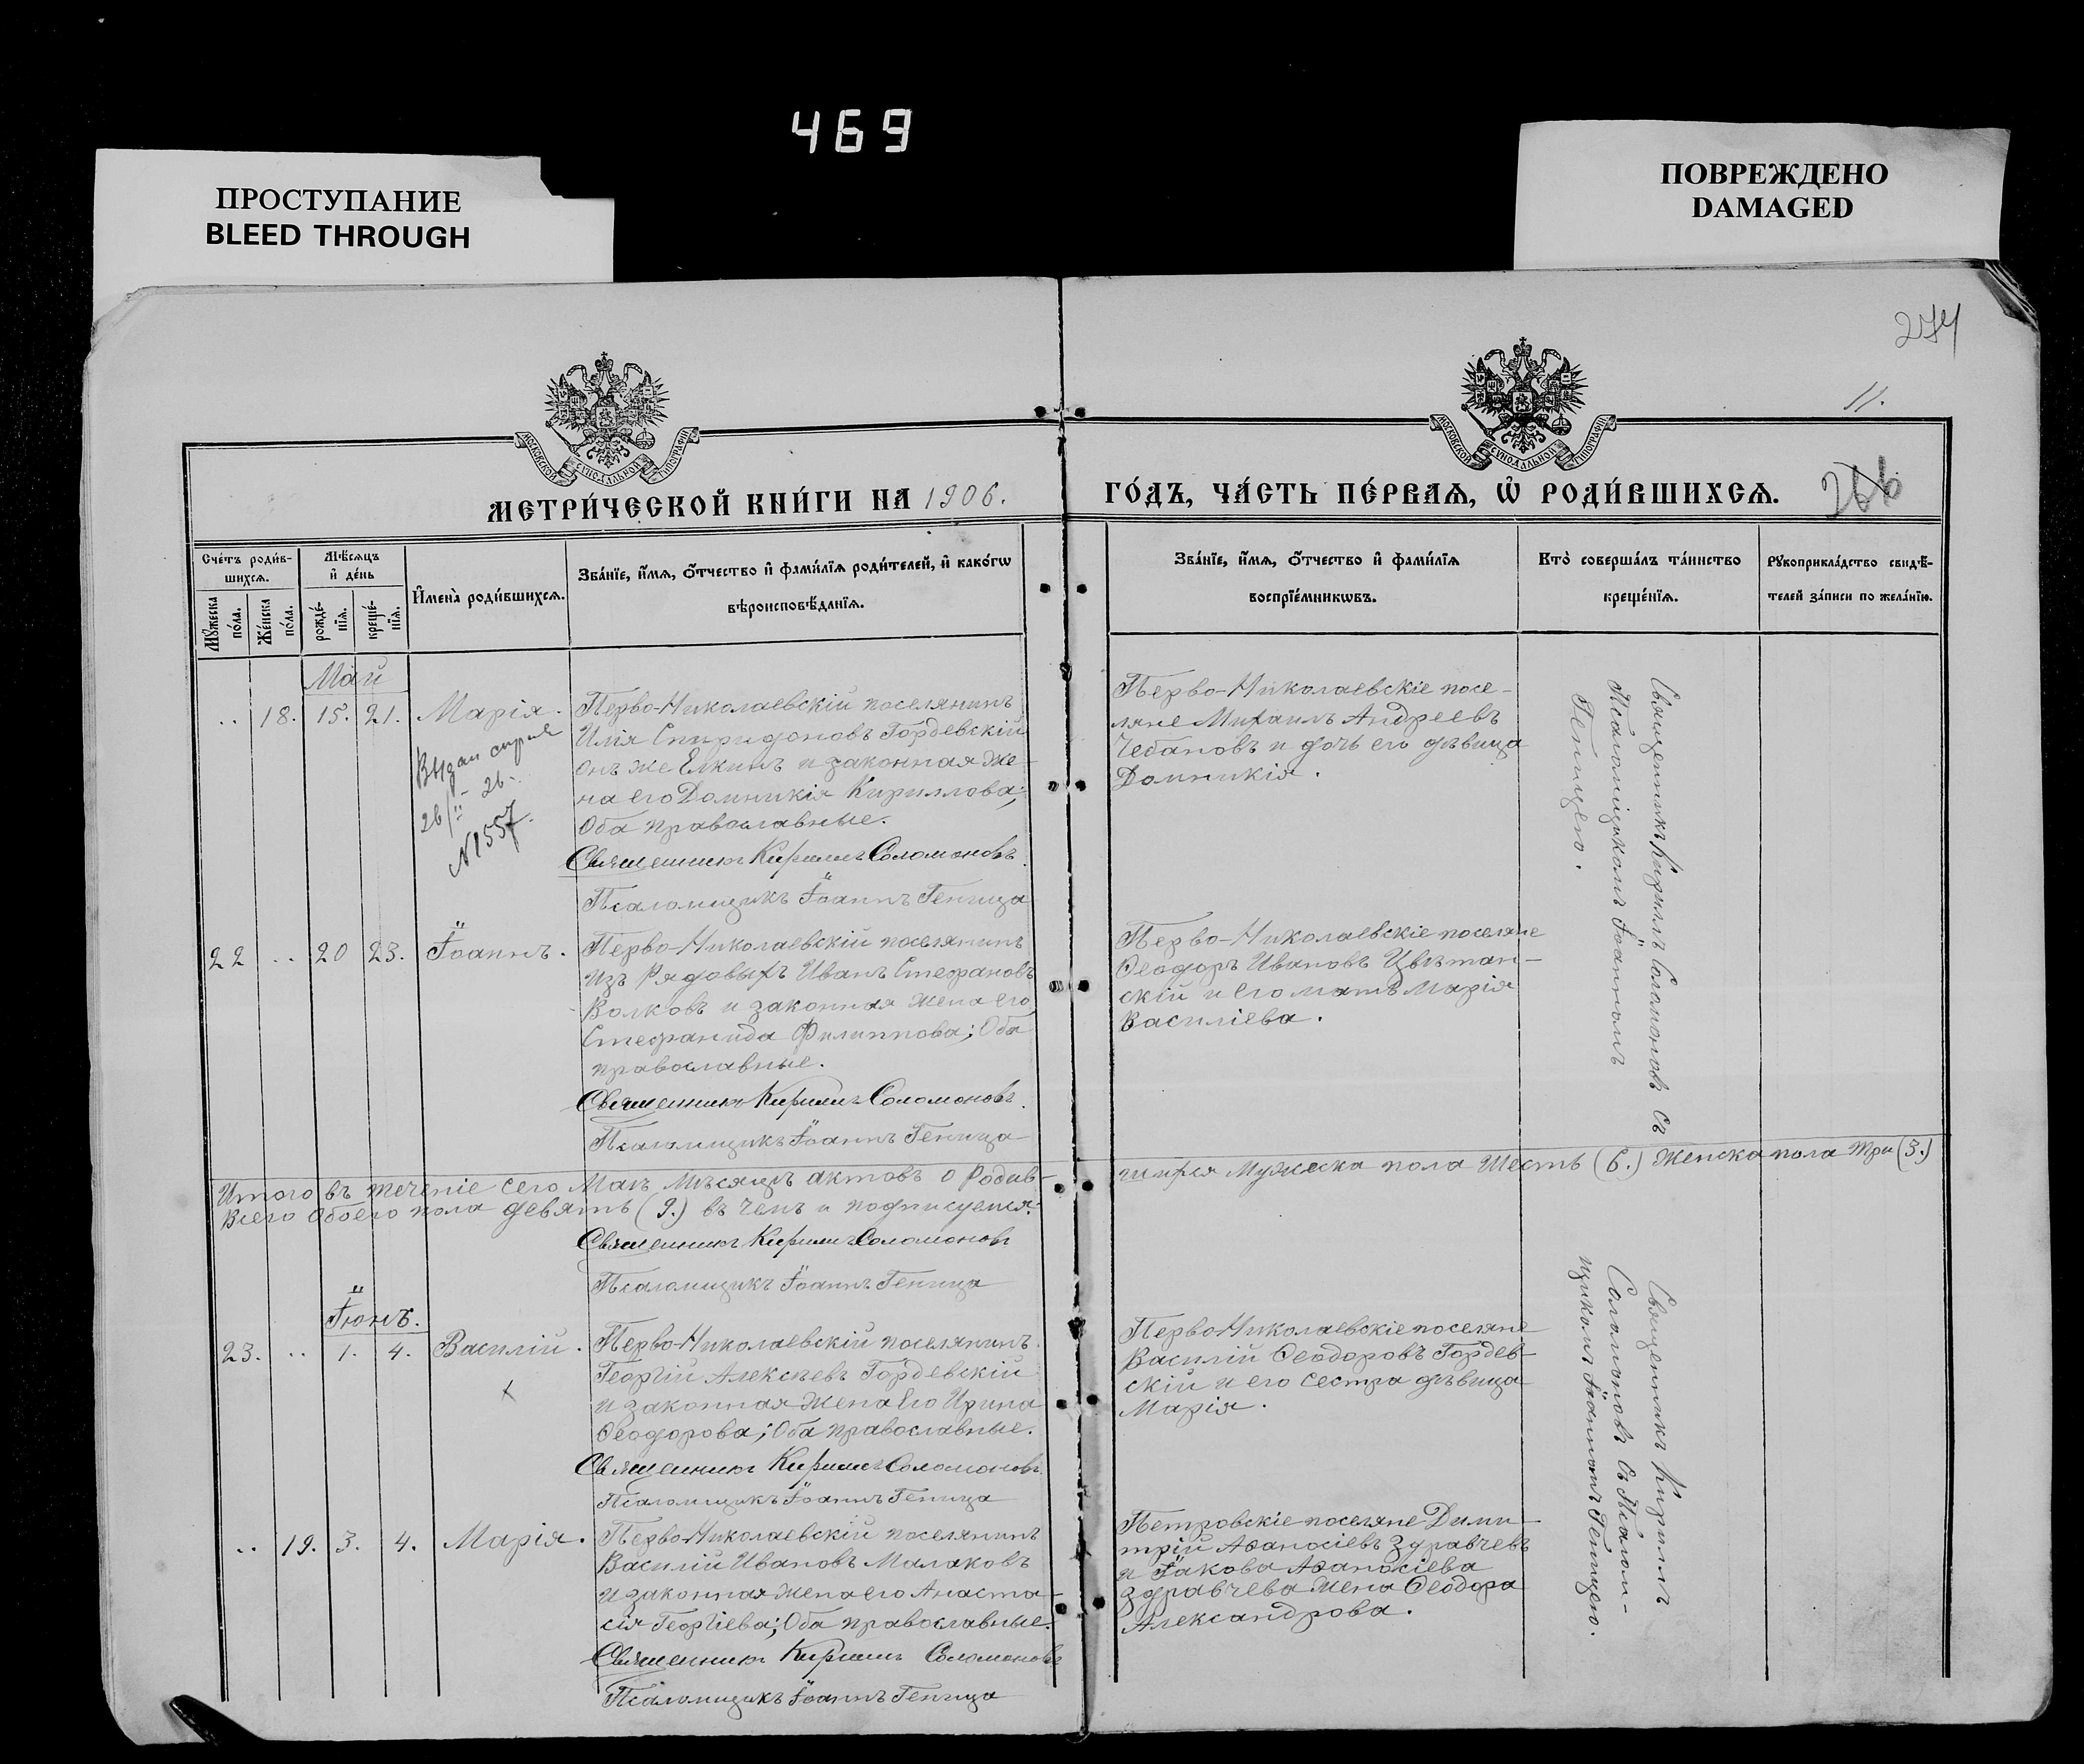 469
ПРОСТУПАНИЕ
BLEED THROUGH
ПОВРЕЖДЕНО
DAMAGED
274
11.
МОСКОВСКОЙ СѴНОДАЛЬНОЙ ТИПОГРАФІИ
МОСКОВСКОЙ СѴНОДАЛЬНОЙ ТИПОГРАФІИ
МЕТРИ́ЧЕСКОЙ КНИ́ГИ НА 1906.
ГО́ДЪ, ЧА́СТЬ ПЕ́РВАѦ, Ѡ҆ РОДИ́ВШИХСѦ.
266
Сче́тъ роди́в-
шихсѧ.
Мꙋ́жеска
по́ла.
Же́нска
по́ла.
Мѣ́сѧцъ
и҆ де́нь
рожде́-
нїѧ.
креще́-
нїѧ.
И҆мена̀ роди́вшихсѧ.
Зва́нїе, и҆́мѧ, ѻ҆́тчество и҆ фами́лїѧ роди́телей, и҆ како́гѡ
вѣроисповѣ́данїѧ.
Зва́нїе, и҆́мѧ, ѻ҆́тчество и҆ фами́лїѧ
воспрїе́мникѡвъ.
Кто̀ соверша́лъ та́инство
креще́нїѧ.
Рꙋкоприкла́дство свидѣ́-
телей за́писи по жела́нїю.
Май
.. 18. 15. 21. Марія.
Выдан
26/II - 26.
N 1557.
Перво-Николаевскій поселянинъ
Илія Спиридоновъ Гордевскій
онъ же Елкинъ и законная же-
на его Домникія Кириллова;
Оба православные.
Священникъ Кириллъ Соломоновъ.
Псаломщикъ Іоаннъ Геница
Перво-Николаевскіе посе-
ляне Михаилъ Андреевъ
Чебановъ и дочь его дѣвица
Домникія.
Священникъ Кириллъ Соломоновъ съ
Псаломщикомъ Іоанномъ
Геницею.
22 .. 20 23. Іоаннъ.
Перво-Николаевскій поселянинъ
изъ Рядовыхъ Иванъ Стефановъ
Волковъ и законная жена его
Стефанида Филиппова; Оба
православные.
Священникъ Кириллъ Соломоновъ.
Псаломщикъ Іоаннъ Геница
Перво-Николаевскіе поселяне
Ѳеодоръ Ивановъ Цвѣтан-
скій и его мать Марія
Василіева.
Итого въ теченіе сего Мая мѣсяца актовъ о родив-
шихся Мужеска пола Шесть (6.) Женска пола три (3.)
Всего Обоего пола девять (9.) въ чемъ и подписуемся:
Священникъ Кириллъ Соломоновъ
Псаломщикъ Іоаннъ Геница
Іюнь.
23. .. 1. 4. Василій.
Перво-Николаевскій поселянинъ
Георгій Алексѣевъ Гордевскій
и законная жена его Ирина
Ѳеодорова; Оба православные.
Священникъ Кириллъ Соломоновъ
Псаломщикъ Іоаннъ Геница
Перво-Николаевскіе поселяне
Василій Ѳеодоровъ Гордев-
скій и его сестра дѣвица
Марія.
Священникъ Кириллъ
Соломоновъ съ Псалом-
щикомъ Іоанномъ Геницею.
.. 19. 3. 4. Марія.
Перво-Николаевскій поселянинъ
Василій Ивановъ Малаковъ
и законная жена его Анаста-
сія Георгіева; Оба православные.
Священникъ Кириллъ Соломоновъ
Псаломщикъ Іоаннъ Геница
Петровскіе поселяне Дими-
трій Аѳанасіевъ Здравчевъ
и Іакова Аѳанасіева
Здравчева жена Ѳеодора
Александрова.